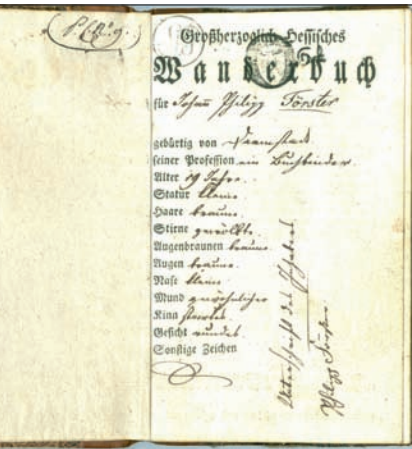 Großherzoglich Hessisches
Wanderbuch
für Johann Philipp Förster
gebürtig von Darmstadt
seiner Profession ein Buchbinder
Alter 19 Jahre.
Statur kleine
Haare braune.
Stirne gewölbte.
Augenbraunen braune
Augen braune.
Nase kleine
Mund gewöhnlicher
Kinn
Gesicht rundes.
Sonstige Zeichen
Unterschrift des Inhabers
Philipp Förster